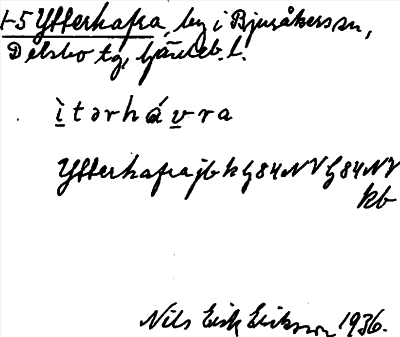 +5 Ytterhafra, by i Bjuråkers sn,
Delsbo tg, Gävleb. l.
ìtərhávra
Ytterhafra jb kG84NVG84NV
kb
Nils Erik Eriksson 1936.